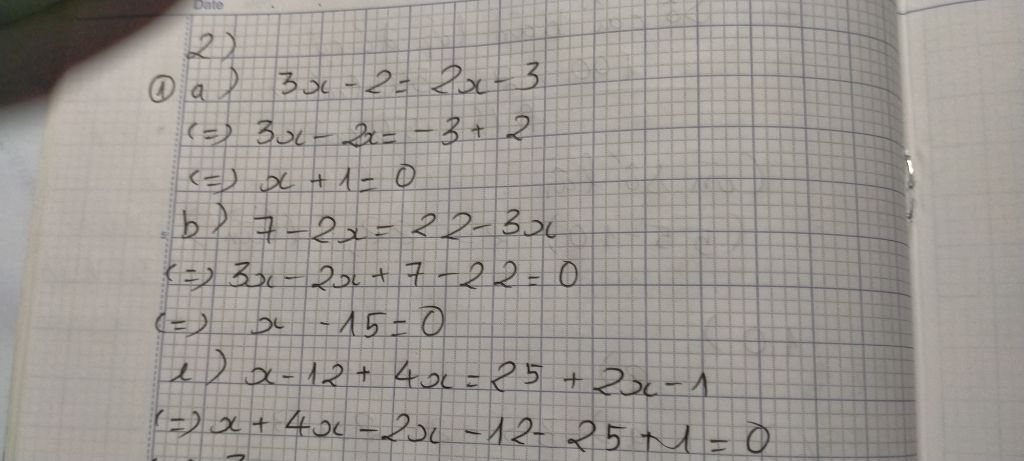 Date
2)
① a) 3x - 2 = 2x - 3
(=) 3x - 2x = -3 + 2
(=) x + 1 = 0
b) 7 - 2x = 22 - 3x
(=) 3x - 2x + 7 - 22 = 0
(=) x - 15 = 0
c) x - 12 + 4x = 25 + 2x - 1
(=) x + 4x - 2x - 12 - 25 + 1 = 0